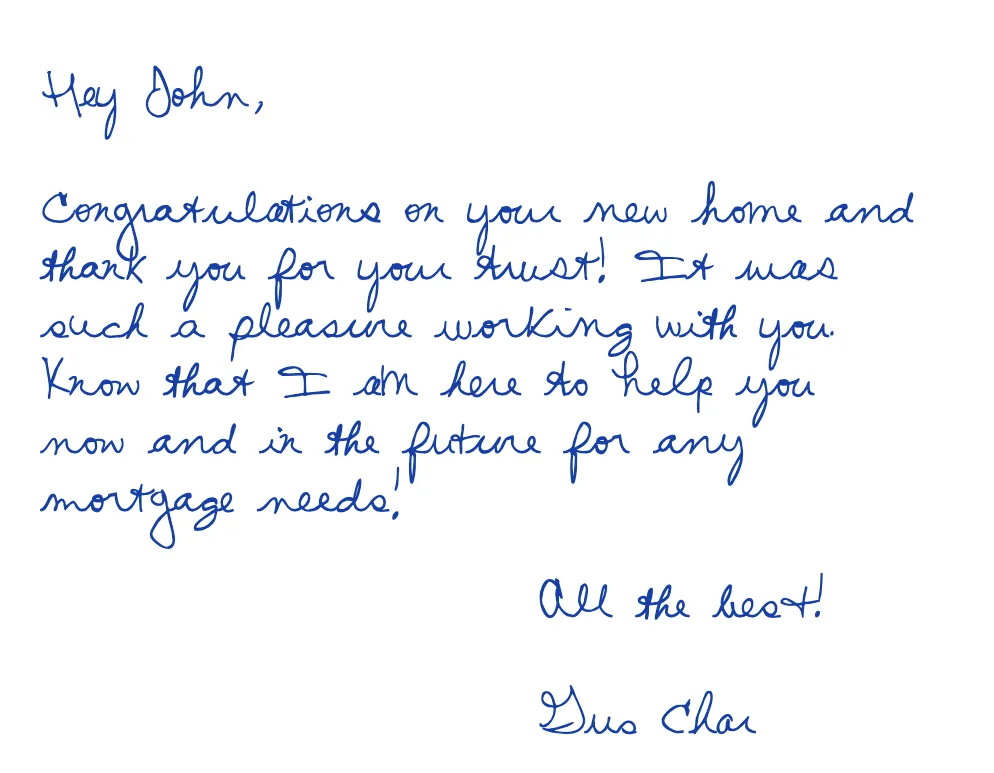 Hey John,
Congratulations on your new home and
thank you for your trust! It was
such a pleasure working with you.
Know that I am here to help you
now and in the future for any
mortgage needs!
All the best!
Gus Char